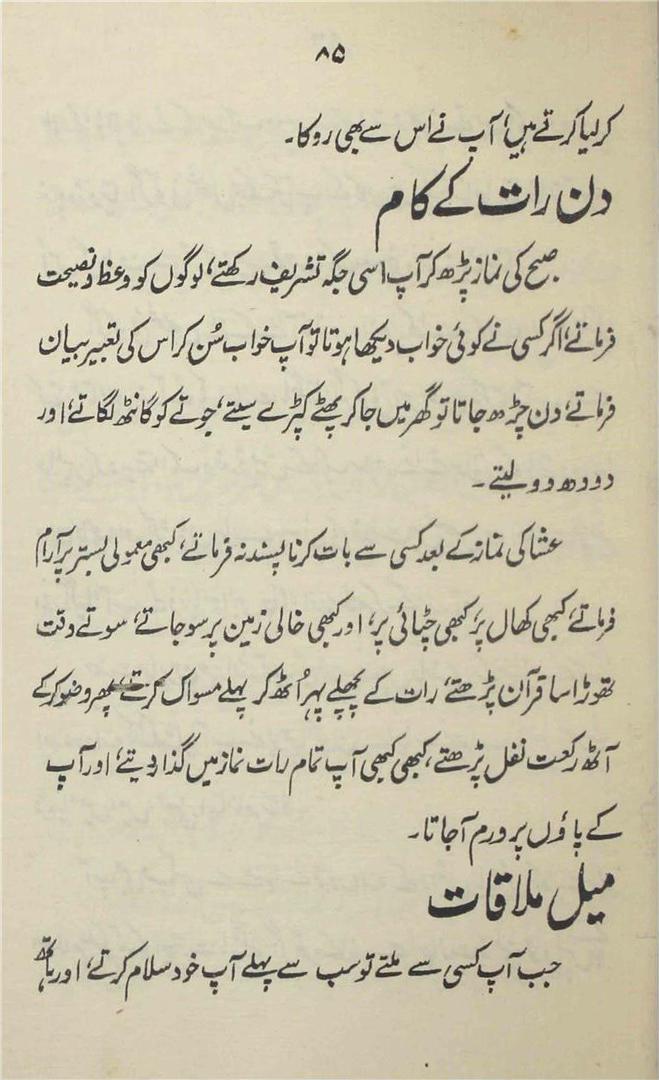 ۸۵
کر لیا کرتے ہیں، آپ نے اس سے بھی روکا۔
دن رات کے کام
صبح کی نماز پڑھ کر آپ اسی جگہ تشریف رکھتے، لوگوں کو وعظ و نصیحت
فرماتے، اگر کسی نے کوئی خواب دیکھا ہوتا تو آپ خواب سُن کر اس کی تعبیر بیان
فرماتے، دن چڑھ جاتا تو گھر میں جا کر پھٹے کپڑے سیتے، جوتے کو گانٹھ لگاتے، اور
دودھ دوہ لیتے۔
عشا کی نماز کے بعد کسی سے بات کرنا پسند نہ فرماتے، کبھی معمولی بستر پر آرام
فرماتے، کبھی کھال پر، کبھی چٹائی پر، اور کبھی خالی زمین پر سو جاتے، سوتے وقت
تھوڑا سا قرآن پڑھتے، رات کے پچھلے پہر اُٹھ کر پہلے مسواک کرتے، پھر وضو کر کے
آٹھ رکعت نفل پڑھتے، کبھی کبھی آپ تمام رات نماز میں گذار دیتے، اور آپ
کے پاؤں پر ورم آجاتا۔
میل ملاقات
جب آپ کسی سے ملتے تو سب سے پہلے آپ خود سلام کرتے، اور ہاتھ